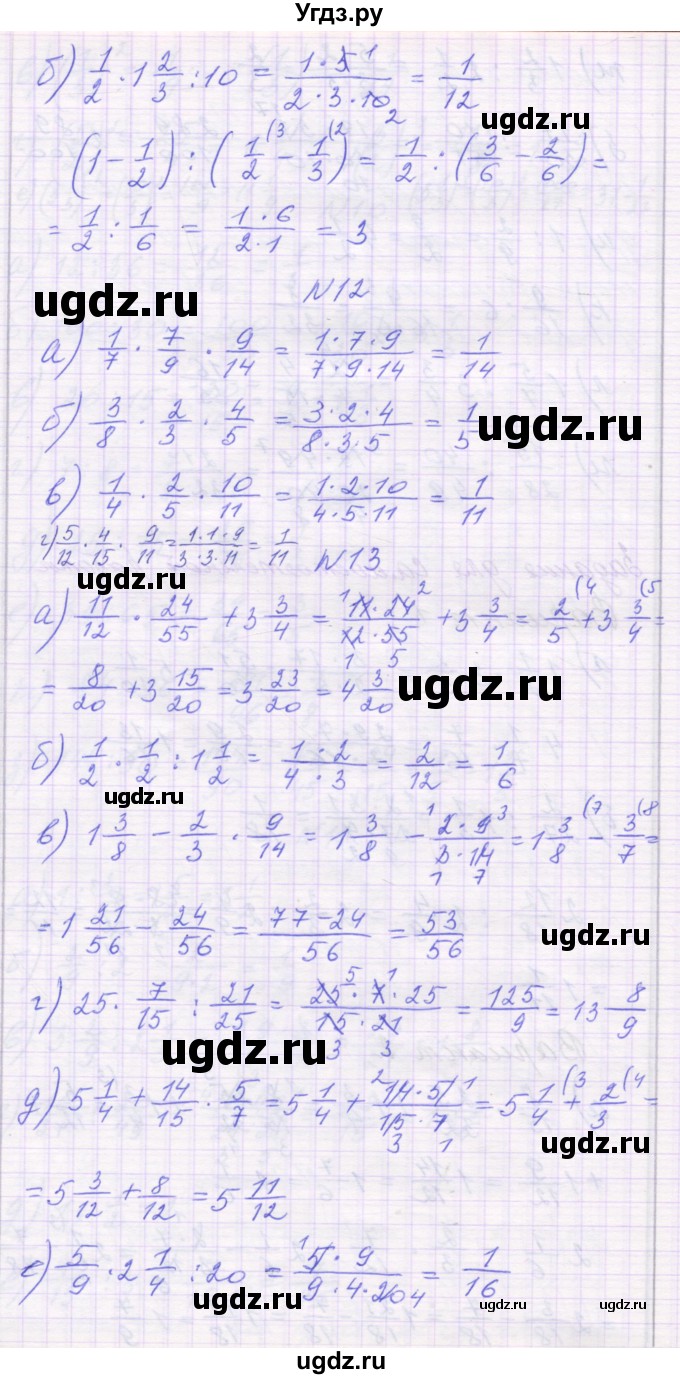 Угдз.ру
б) 1/2 · 1 2/3 : 10 = 1·5 1/2·3·10 2 = 1/12
ugdz.ru
(1 - 1/2) : (1/2 (3 - 1/3 (2) = 1/2 : (3/6 - 2/6) =
= 1/2 : 1/6 = 1·6/2·1 = 3
ugdz.ru
N12
а) 1/7 · 7/9 · 9/14 = 1·7·9/7·9·14 = 1/14
б) 3/8 · 2/3 · 4/5 = 3·2·4/8·3·5 = 1/5
ugdz.ru
в) 1/4 · 2/5 · 10/11 = 1·2·10/4·5·11 = 1/11
г) 5/12 · 4/15 · 9/11 = 1·1·9/3·3·11 = 1/11
ugdz.ru
N13
а) 11/12 · 24/55 + 3 3/4 = 1 11·24 2/1 12·55 5 + 3 3/4 = 2/5 (4 + 3 3/4 (5 =
= 8/20 + 3 15/20 = 3 23/20 = 4 3/20
ugdz.ru
б) 1/2 · 1/2 : 1 1/2 = 1·2/4·3 = 2/12 = 1/6
ugdz.ru
в) 1 3/8 - 2/3 · 9/14 = 1 3/8 - 1 2·9 3/1 3·14 7 = 1 3/8 (7 - 3/7 (8 =
= 1 21/56 - 24/56 = 77-24/56 = 53/56
ugdz.ru
г) 25 · 7/15 : 21/25 = 25 5·7 1·25/15 3·21 3 = 125/9 = 13 8/9
ugdz.ru
д) 5 1/4 + 14/15 · 5/7 = 5 1/4 + 2 14·5 1/15 3·7 1 = 5 1/4 (3 + 2/3 (4 =
ugdz.ru
= 5 3/12 + 8/12 = 5 11/12
е) 5/9 · 2 1/4 : 20 = 1 5·9/9·4·20 4 = 1/16
ugdz.ru
ugdz.ru
ugdz.ru
ugdz.ru